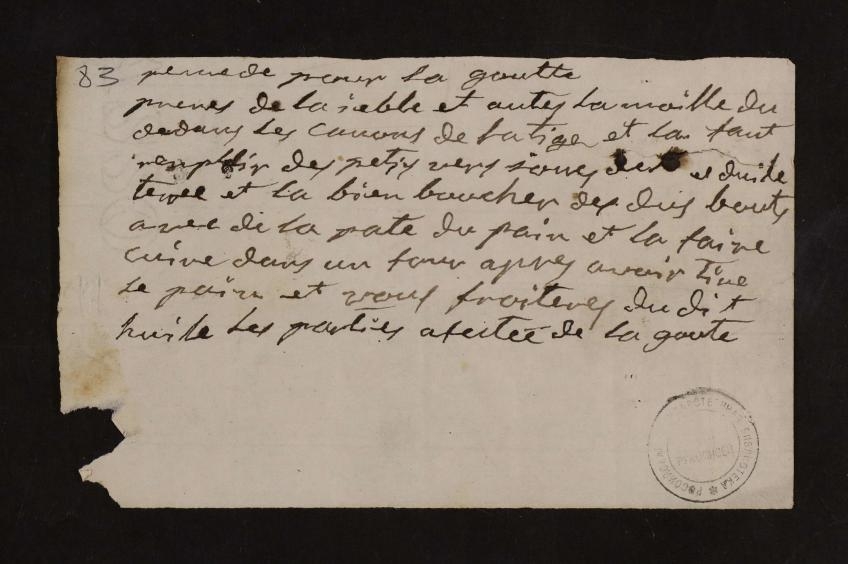 83 remede pour la goutte
prenes de la ieble et autes la moille du
dedans les canons de la tige et la faut
remplir des petis vers sorres et duile
terre et la bien boucher des dus bouts
avec de la pate du pain et la faire
cuire dans un four apres avoir tire
le pain et vous froiteres du dit
huile les parties afectée de la goute
БИБЛИОТЕКА * РОССИЙСКАЯ